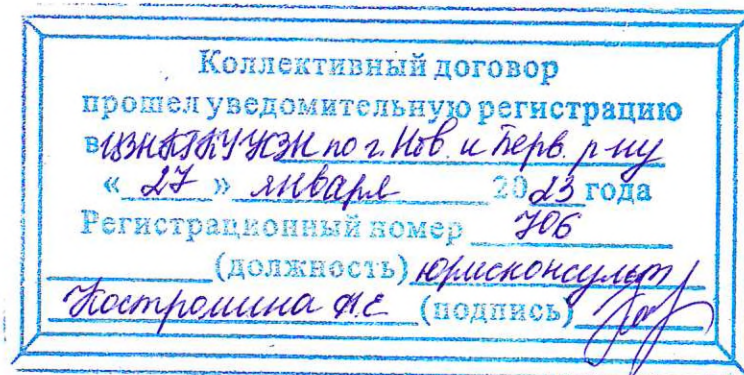 Коллективный договор
прошел уведомительную регистрацию
в по г. Нов. и Перв. р-ну
« 27 » января 2023 года
Регистрационный номер 706
(должность) юрисконсульт
Костромина (подпись)